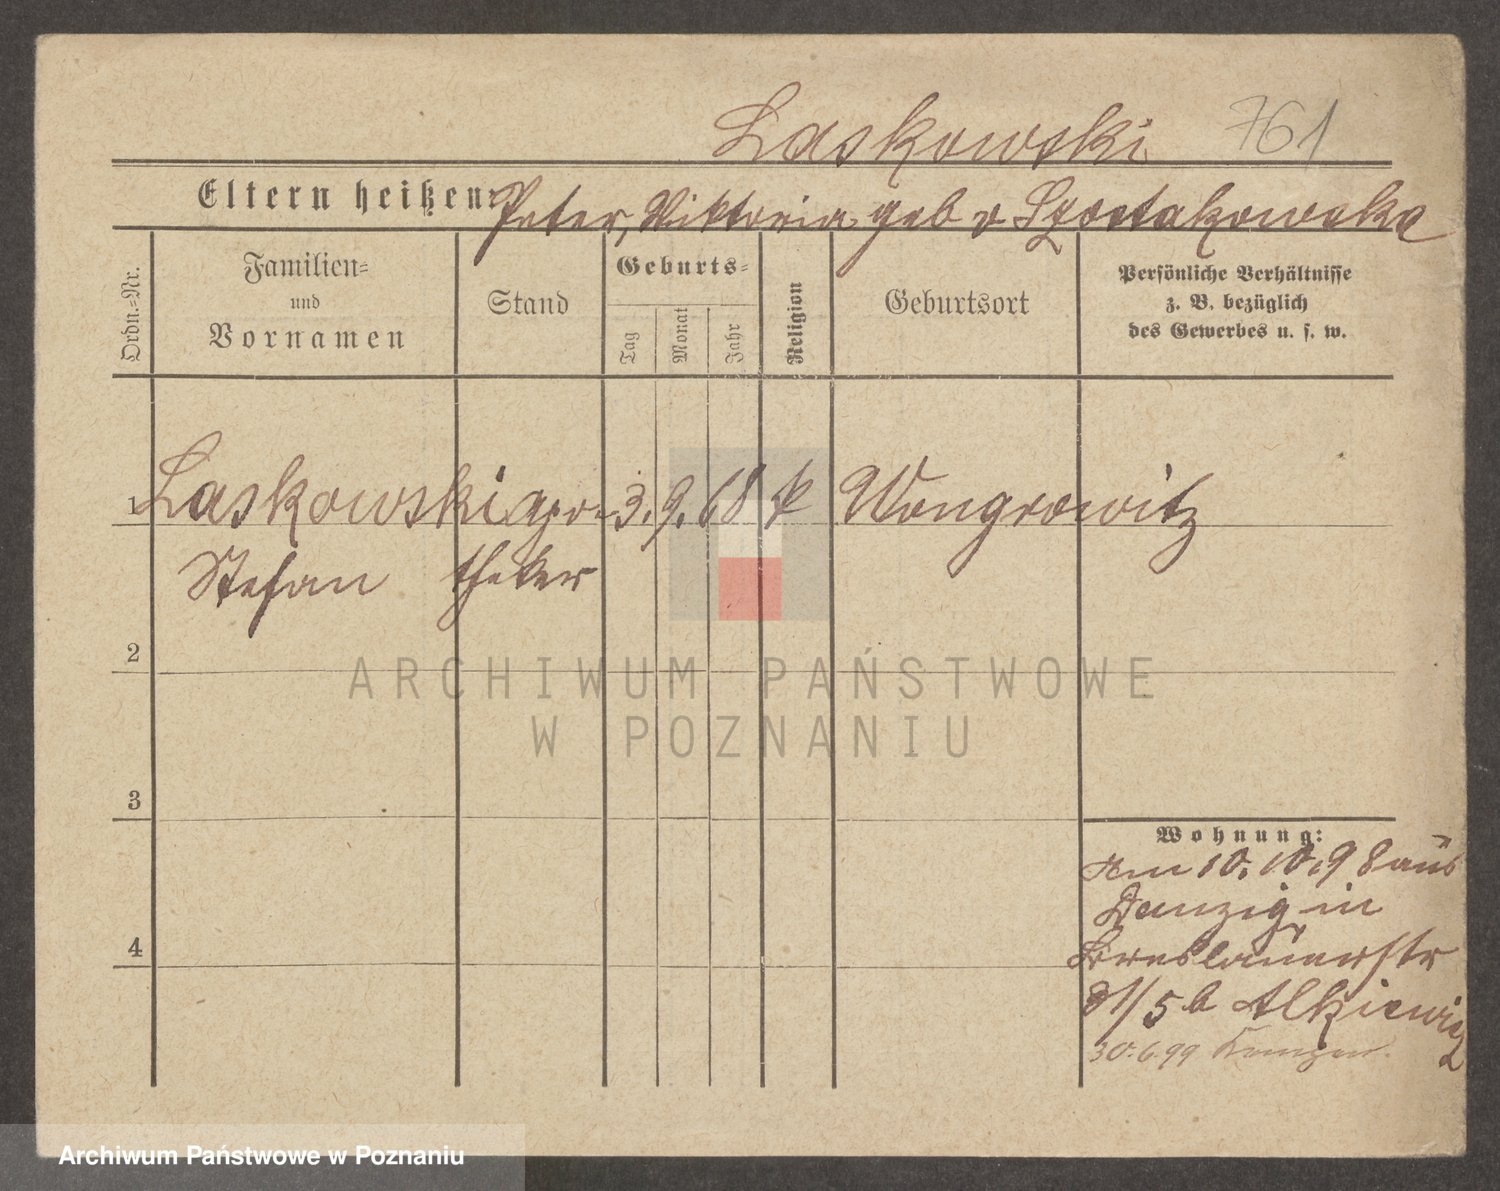 Laskowski 761
Eltern heißen: Peter, Viktoria geb v Szostakowska
Ordn.=Nr.
Familien=
und
Vornamen
Stand
Geburts=
Tag
Monat
Jahr
Religion
Geburtsort
Persönliche Verhältnisse
z. B. bezüglich
des Gewerbes u. s. w.
1 Laskowski apo- 3. 9. 68 k Wongrowitz
Stefan theker
2
ARCHIWUM PAŃSTWOWE
W POZNANIU
3
Wohnung:
Am 10. 10. 98 aus
Danzig in
4
Breslauerstr
31/5 b Alkiewicz
30.6.99
Archiwum Państwowe w Poznaniu